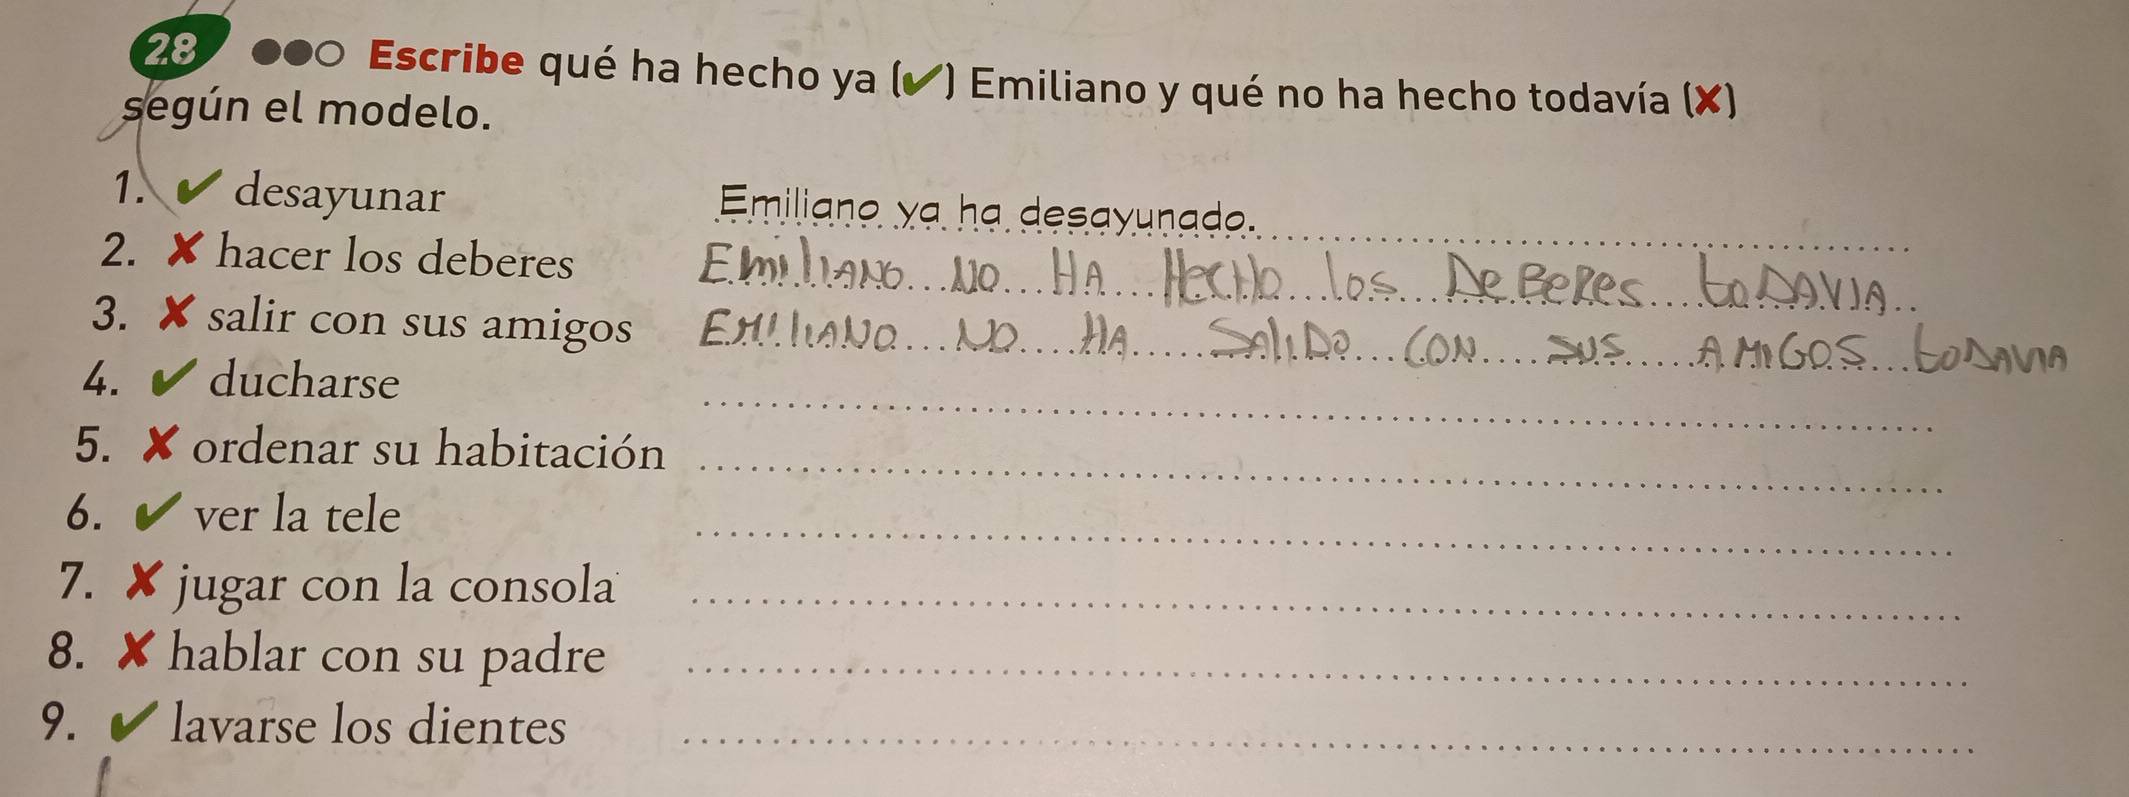 28 Escribe qué ha hecho ya (✔) Emiliano y qué no ha hecho todavía (✘)
según el modelo.
1. ✔ desayunar Emiliano ya ha desayunado.
2. ✘ hacer los deberes EmiliANO NO HA HecHo los DeBeRes toDAVIA
3. ✘ salir con sus amigos EMIliANO NO HA SAliDo CON SUS AMiGOS toDAVIA
4. ✔ ducharse
5. ✘ ordenar su habitación
6. ✔ ver la tele
7. ✘ jugar con la consola
8. ✘ hablar con su padre
9. ✔ lavarse los dientes